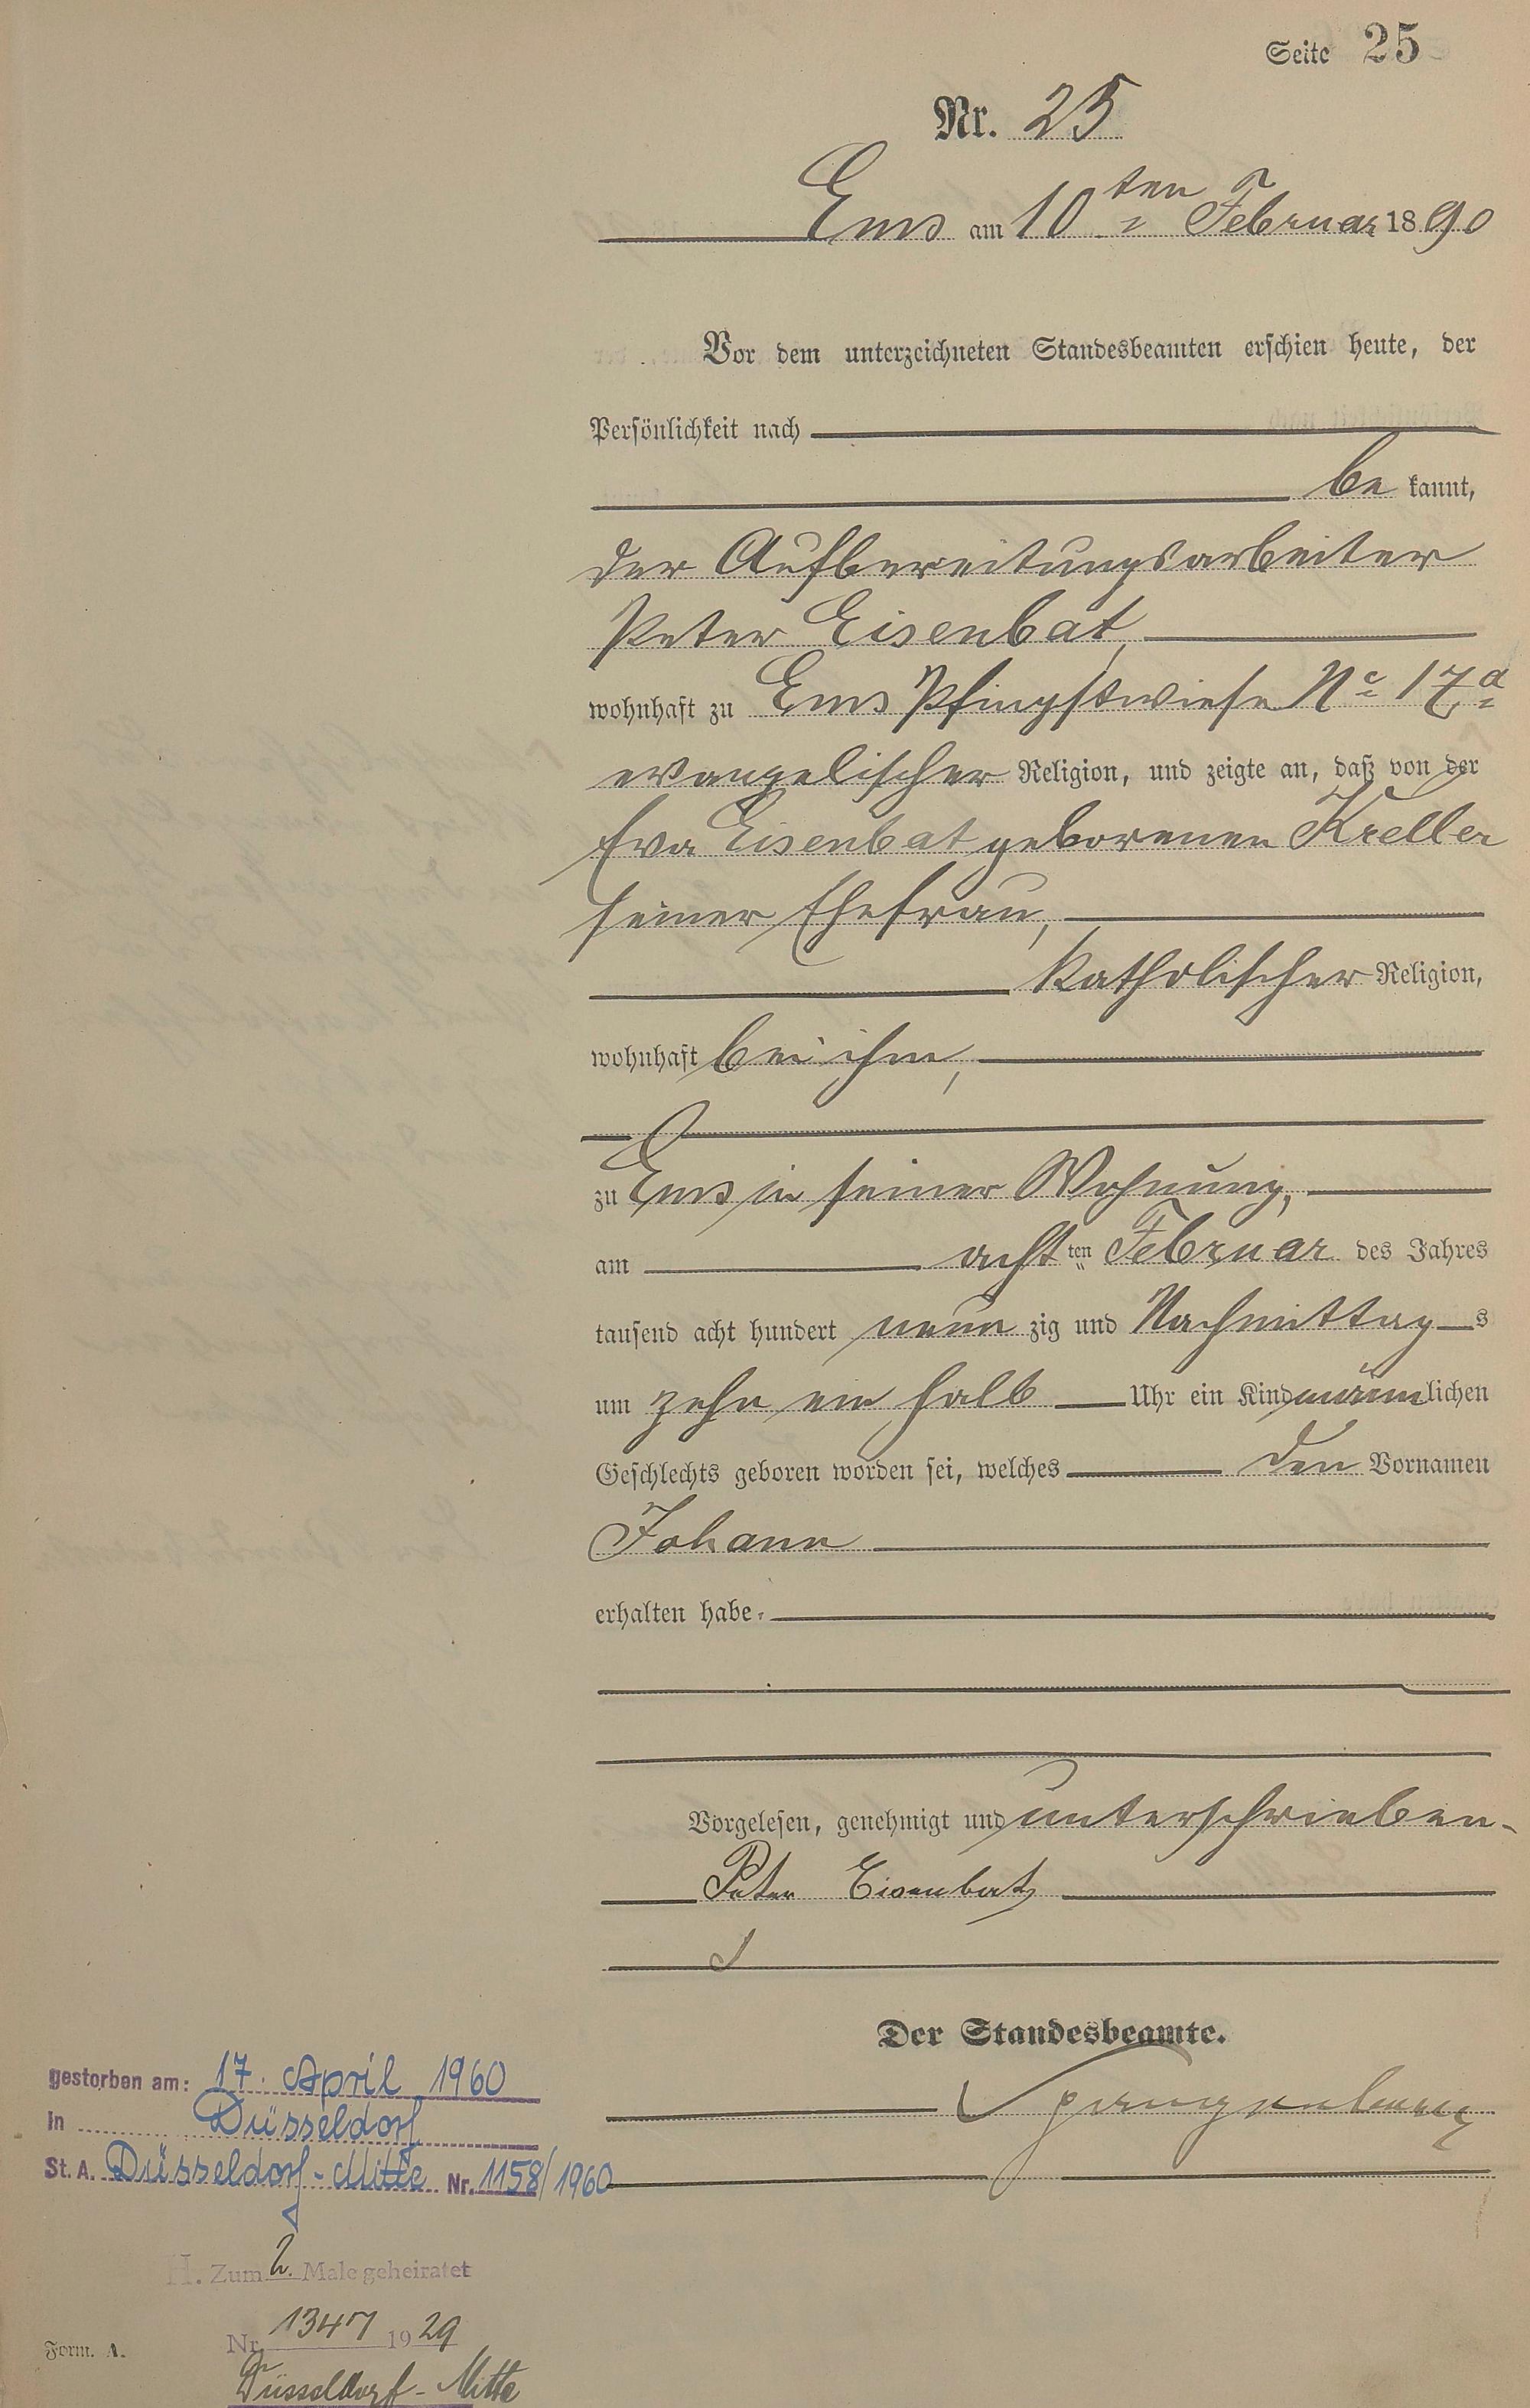 Seite 25
Nr. 25
Ems am 10ten Februar 1890
Vor dem unterzeichneten Standesbeamten erschien heute, der
Persönlichkeit nach
be kannt,
der Aufbereitungsarbeiter
Peter Eisenbat,
wohnhaft zu Ems Pfingstwiese No 17a
evangelischer Religion, und zeigte an, daß von der
Eva Eisenbat geborenen Kreller
seiner Ehefrau,
katholischer Religion,
wohnhaft bei ihm,
zu Ems in seiner Wohnung,
am acht ten Februar des Jahres
tausend acht hundert neun zig und Nachmittag s
um zehn ein halb Uhr ein Kind männlichen
Geschlechts geboren worden sei, welches den Vornamen
Johann
erhalten habe.
Vorgelesen, genehmigt und unterschrieben.
Peter Eisenbatz
Der Standesbeamte.
gestorben am: 17. April 1960
in Düsseldorf
St. A. Düsseldorf-Mitte Nr. 1158/1960
H. Zum 2. Male geheiratet
Nr. 1347 1929
Düsseldorf-Mitte
Form. A.